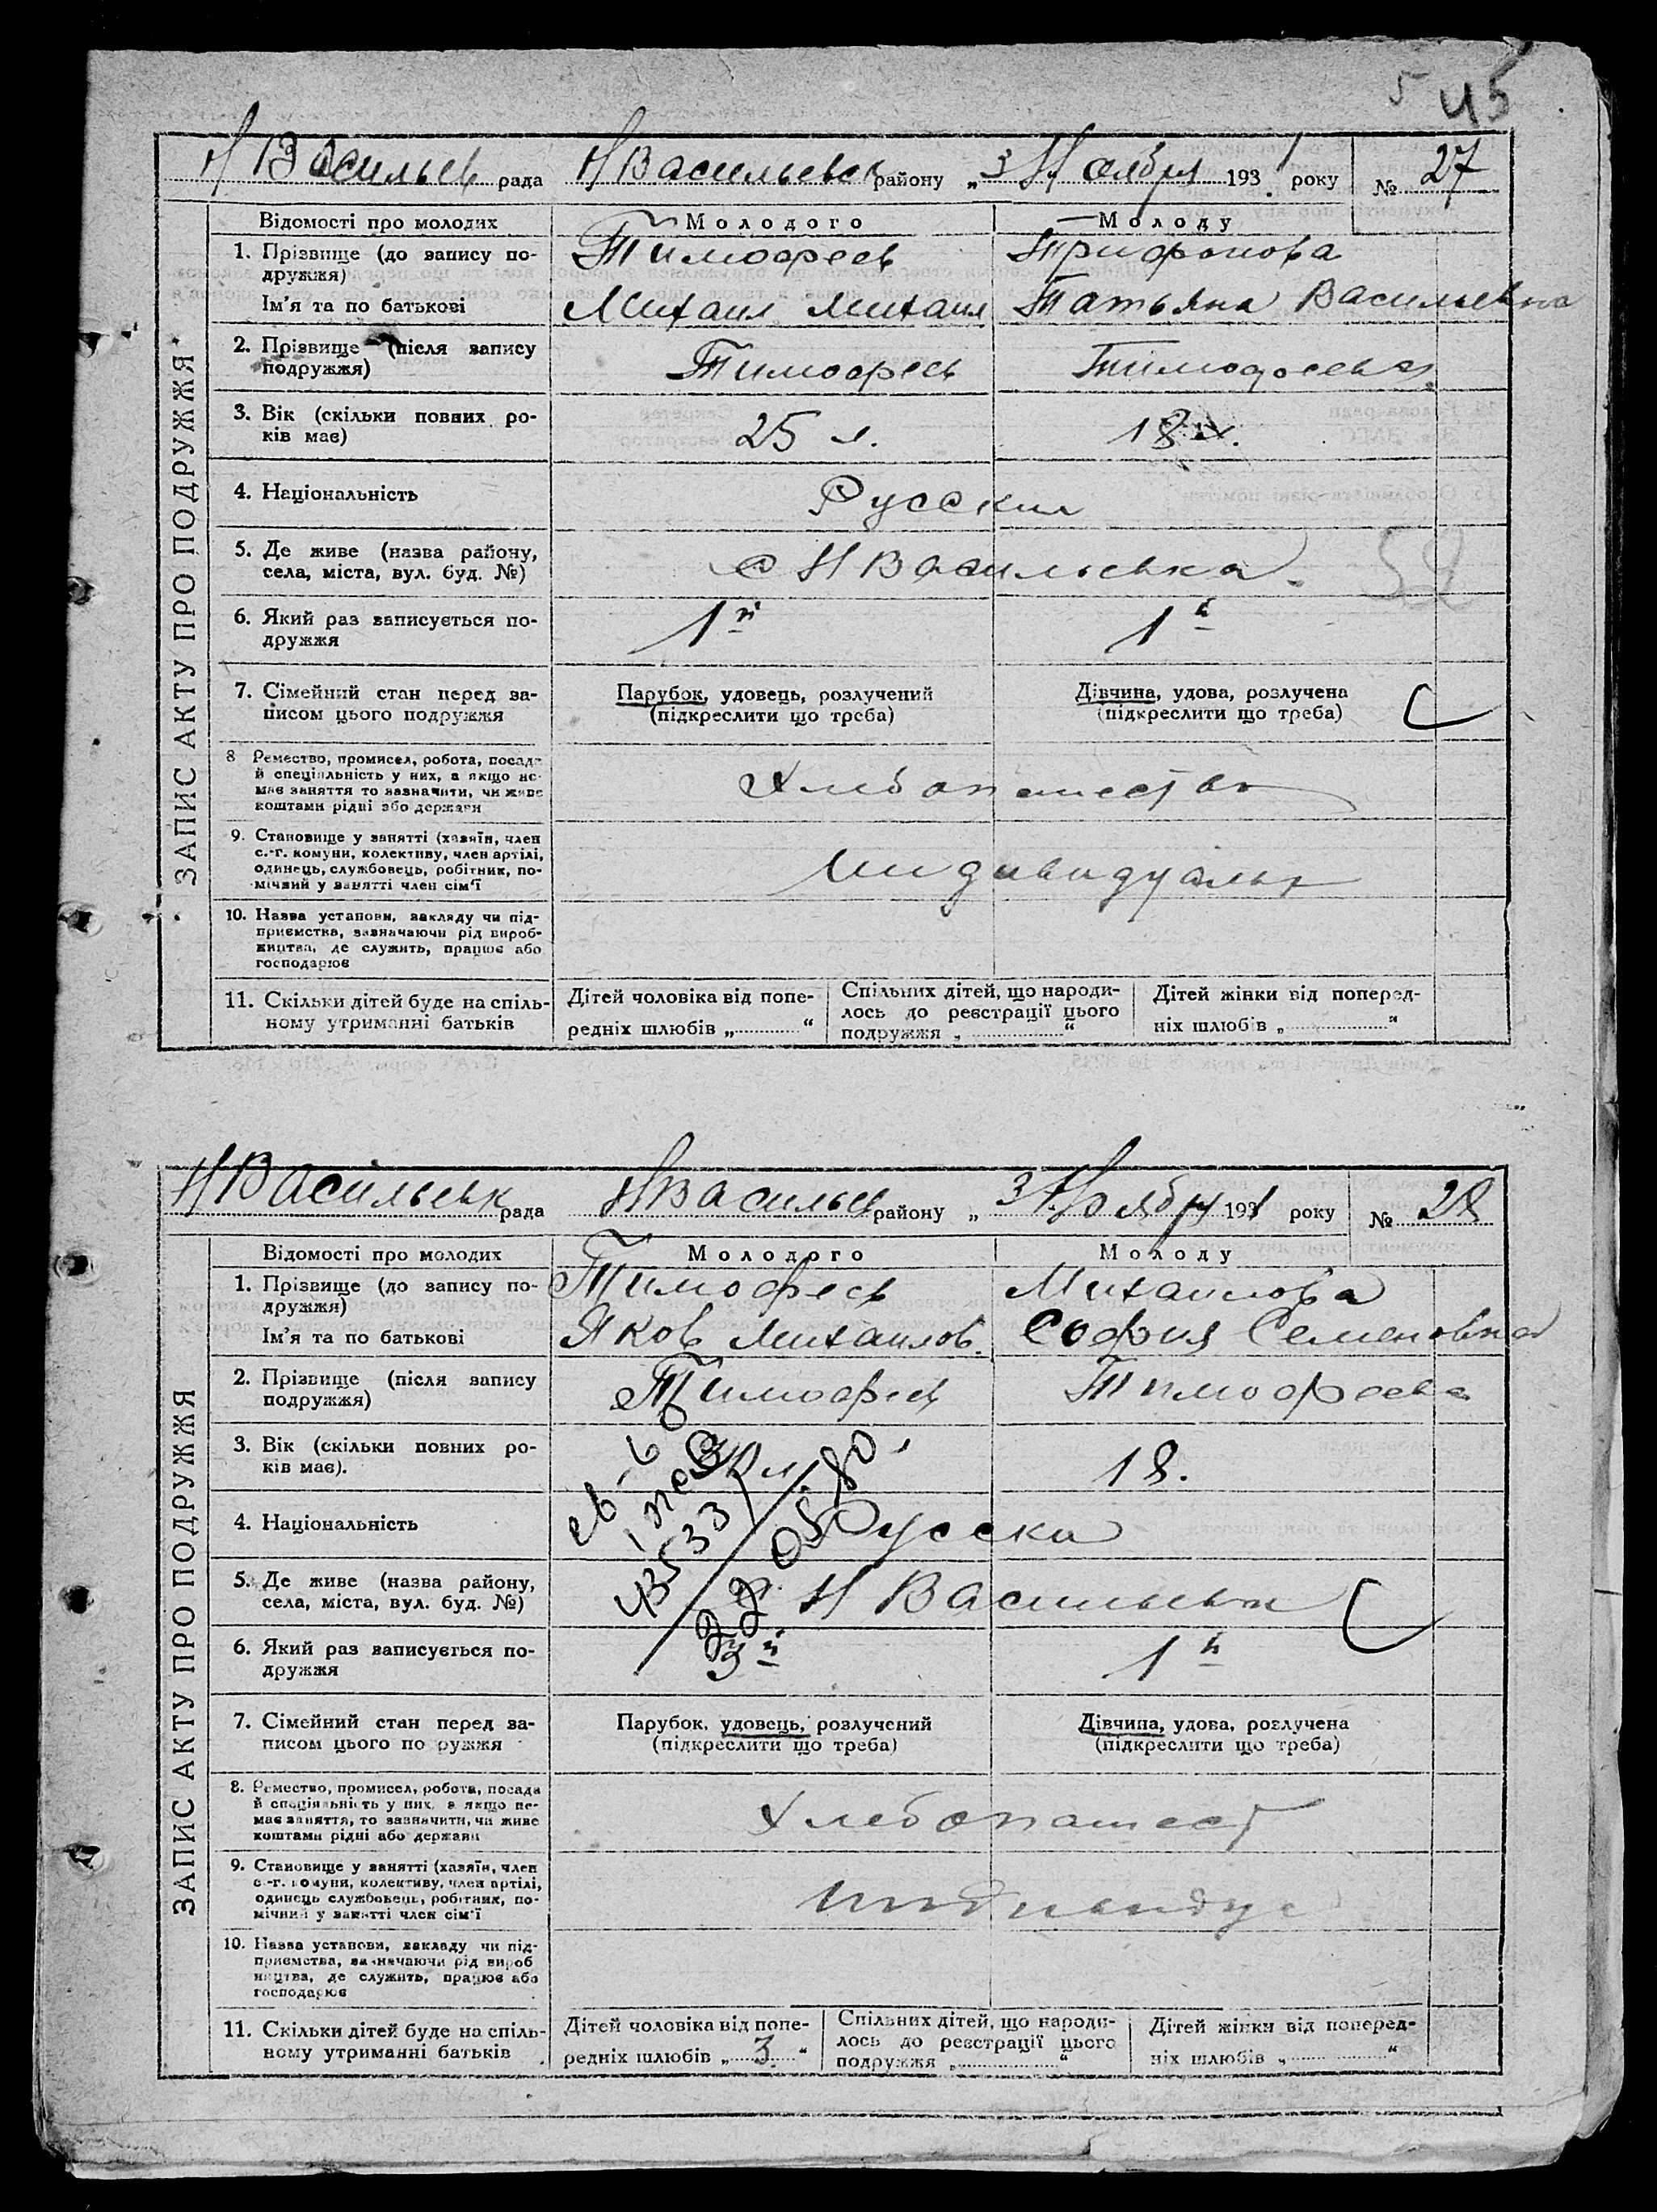 5 45
Н Васильев рада Н Васильевск району „3 Ноября 1931 року № 27
ЗАПИС АКТУ ПРО ПОДРУЖЖЯ
Відомості про молодих Молодого Молоду
1. Прізвище (до запису по- Тимофеев Трифонова
дружжя)
Ім'я та по батькові Михаил Михаил Татьяна Васильевна
2. Прізвище (після запису
подружжя) Тимофеев Тимофеева
3. Вік (скільки повних ро-
ків має) 25 л. 18 л.
4. Національність Русскии
5. Де живе (назва району,
села, міста, вул. буд. №) с Н Васильевка. 52
6. Який раз записується по- 1й 1й
дружжя
7. Сімейний стан перед за- Парубок, удовець, розлучений Дівчина, удова, розлучена
писом цього подружжя (підкреслити що треба) (підкреслити що треба)
8 Ремество, промисел, робота, посада
й спеціяльність у них, а якщо не-
має заняття то зазначити, чи живе
коштами рідні або держави
Хлебопашество
9. Становище у занятті (хазяїн, член
с.-г. комуни, колективу, член артілі,
одинець, службовець, робітник, по-
мічний у занятті член сім'ї
10. Назва установи, закладу чи під-
приємства, зазначаючи рід вироб-
ництва, де служить, працює або
господарює
11. Скільки дітей буде на спіль- Дітей чоловіка від попе- Спільних дітей, що народи- Дітей жінки від поперед-
ному утриманні батьків редніх шлюбів „ “ лось до реєстрації цього ніх шлюбів „ “
подружжя „ “
Н Васильевк рада Н Васильев району „ 3 Ноября 1931 року № 28
ЗАПИС АКТУ ПРО ПОДРУЖЖЯ
Відомості про молодих Молодого Молоду
1. Прізвище (до запису по- Тимофеев Михаилова
дружжя)
Ім'я та по батькові Яков Михаилов. София Семеновна
2. Прізвище (після запису
подружжя) Тимофеев Тимофеева
3. Вік (скільки повних ро-
ків має). 18.
4. Національність Русски
5. Де живе (назва району,
села, міста, вул. буд. №) Н Васильевки
6. Який раз записується по- 3й 1й
дружжя
7. Сімейний стан перед за- Парубок, удовець, розлучений Дівчина, удова, розлучена
писом цього по ружжя (підкреслити що треба) (підкреслити що треба)
8. Ремество, промисел, робота, посада
й спеціяльність у них, а якщо не-
має заняття, то зазначити, чи живе
коштами рідні або держави
Хлебопашест
9. Становище у занятті (хазяїн, член
с.-г. комуни, колективу, член артілі,
одинець службовець, робітник, по-
мічний у занятті член сім'ї
10. Назва установи, закладу чи під-
приємства, зазначаючи рід вироб
ництва, де служить, працює або
господарює
11. Скільки дітей буде на спіль- Дітей чоловіка від попе- Спільних дітей, що народи- Дітей жінки від поперед-
ному утриманні батьків редніх шлюбів „ 3 “ лось до реєстрації цього ніх шлюбів „ “
подружжя „ “